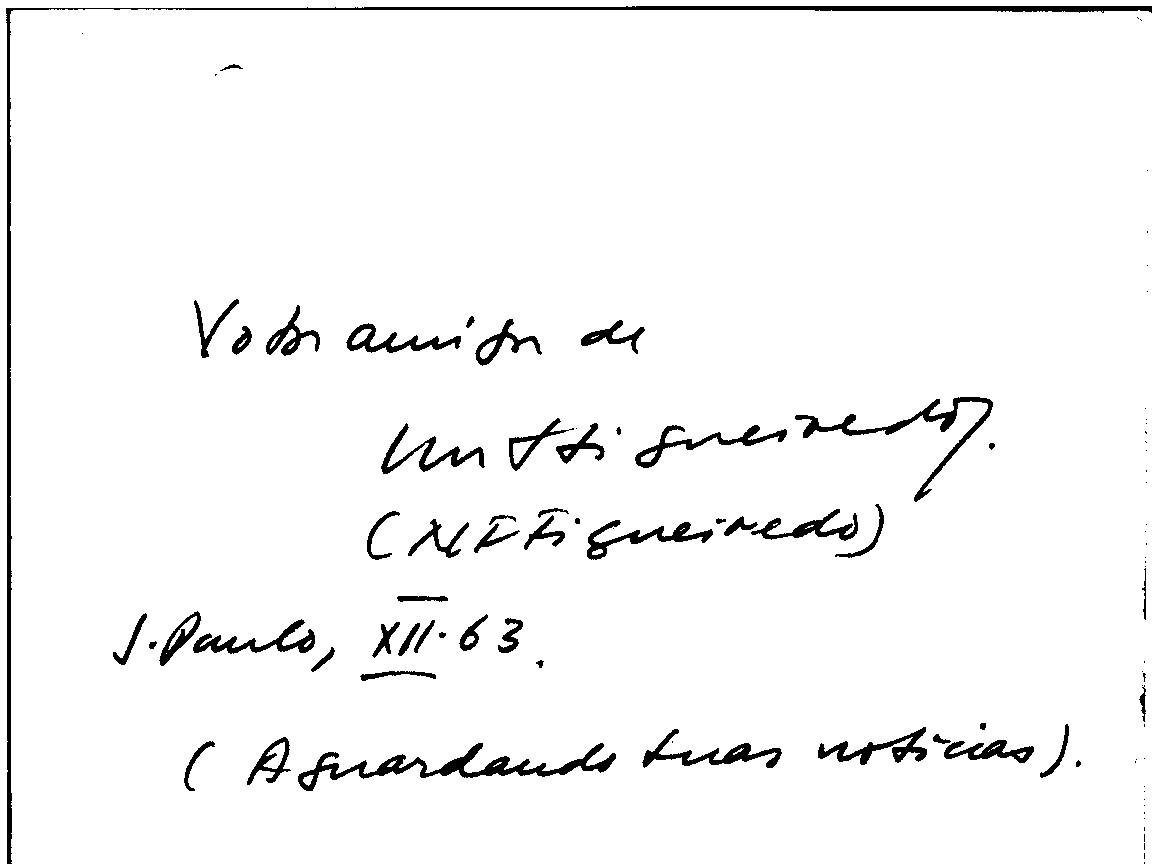 Votos amigos de
Figueiredo.
(Figueiredo)
S. Paulo, XII·63.
(Aguardando tuas noticias).